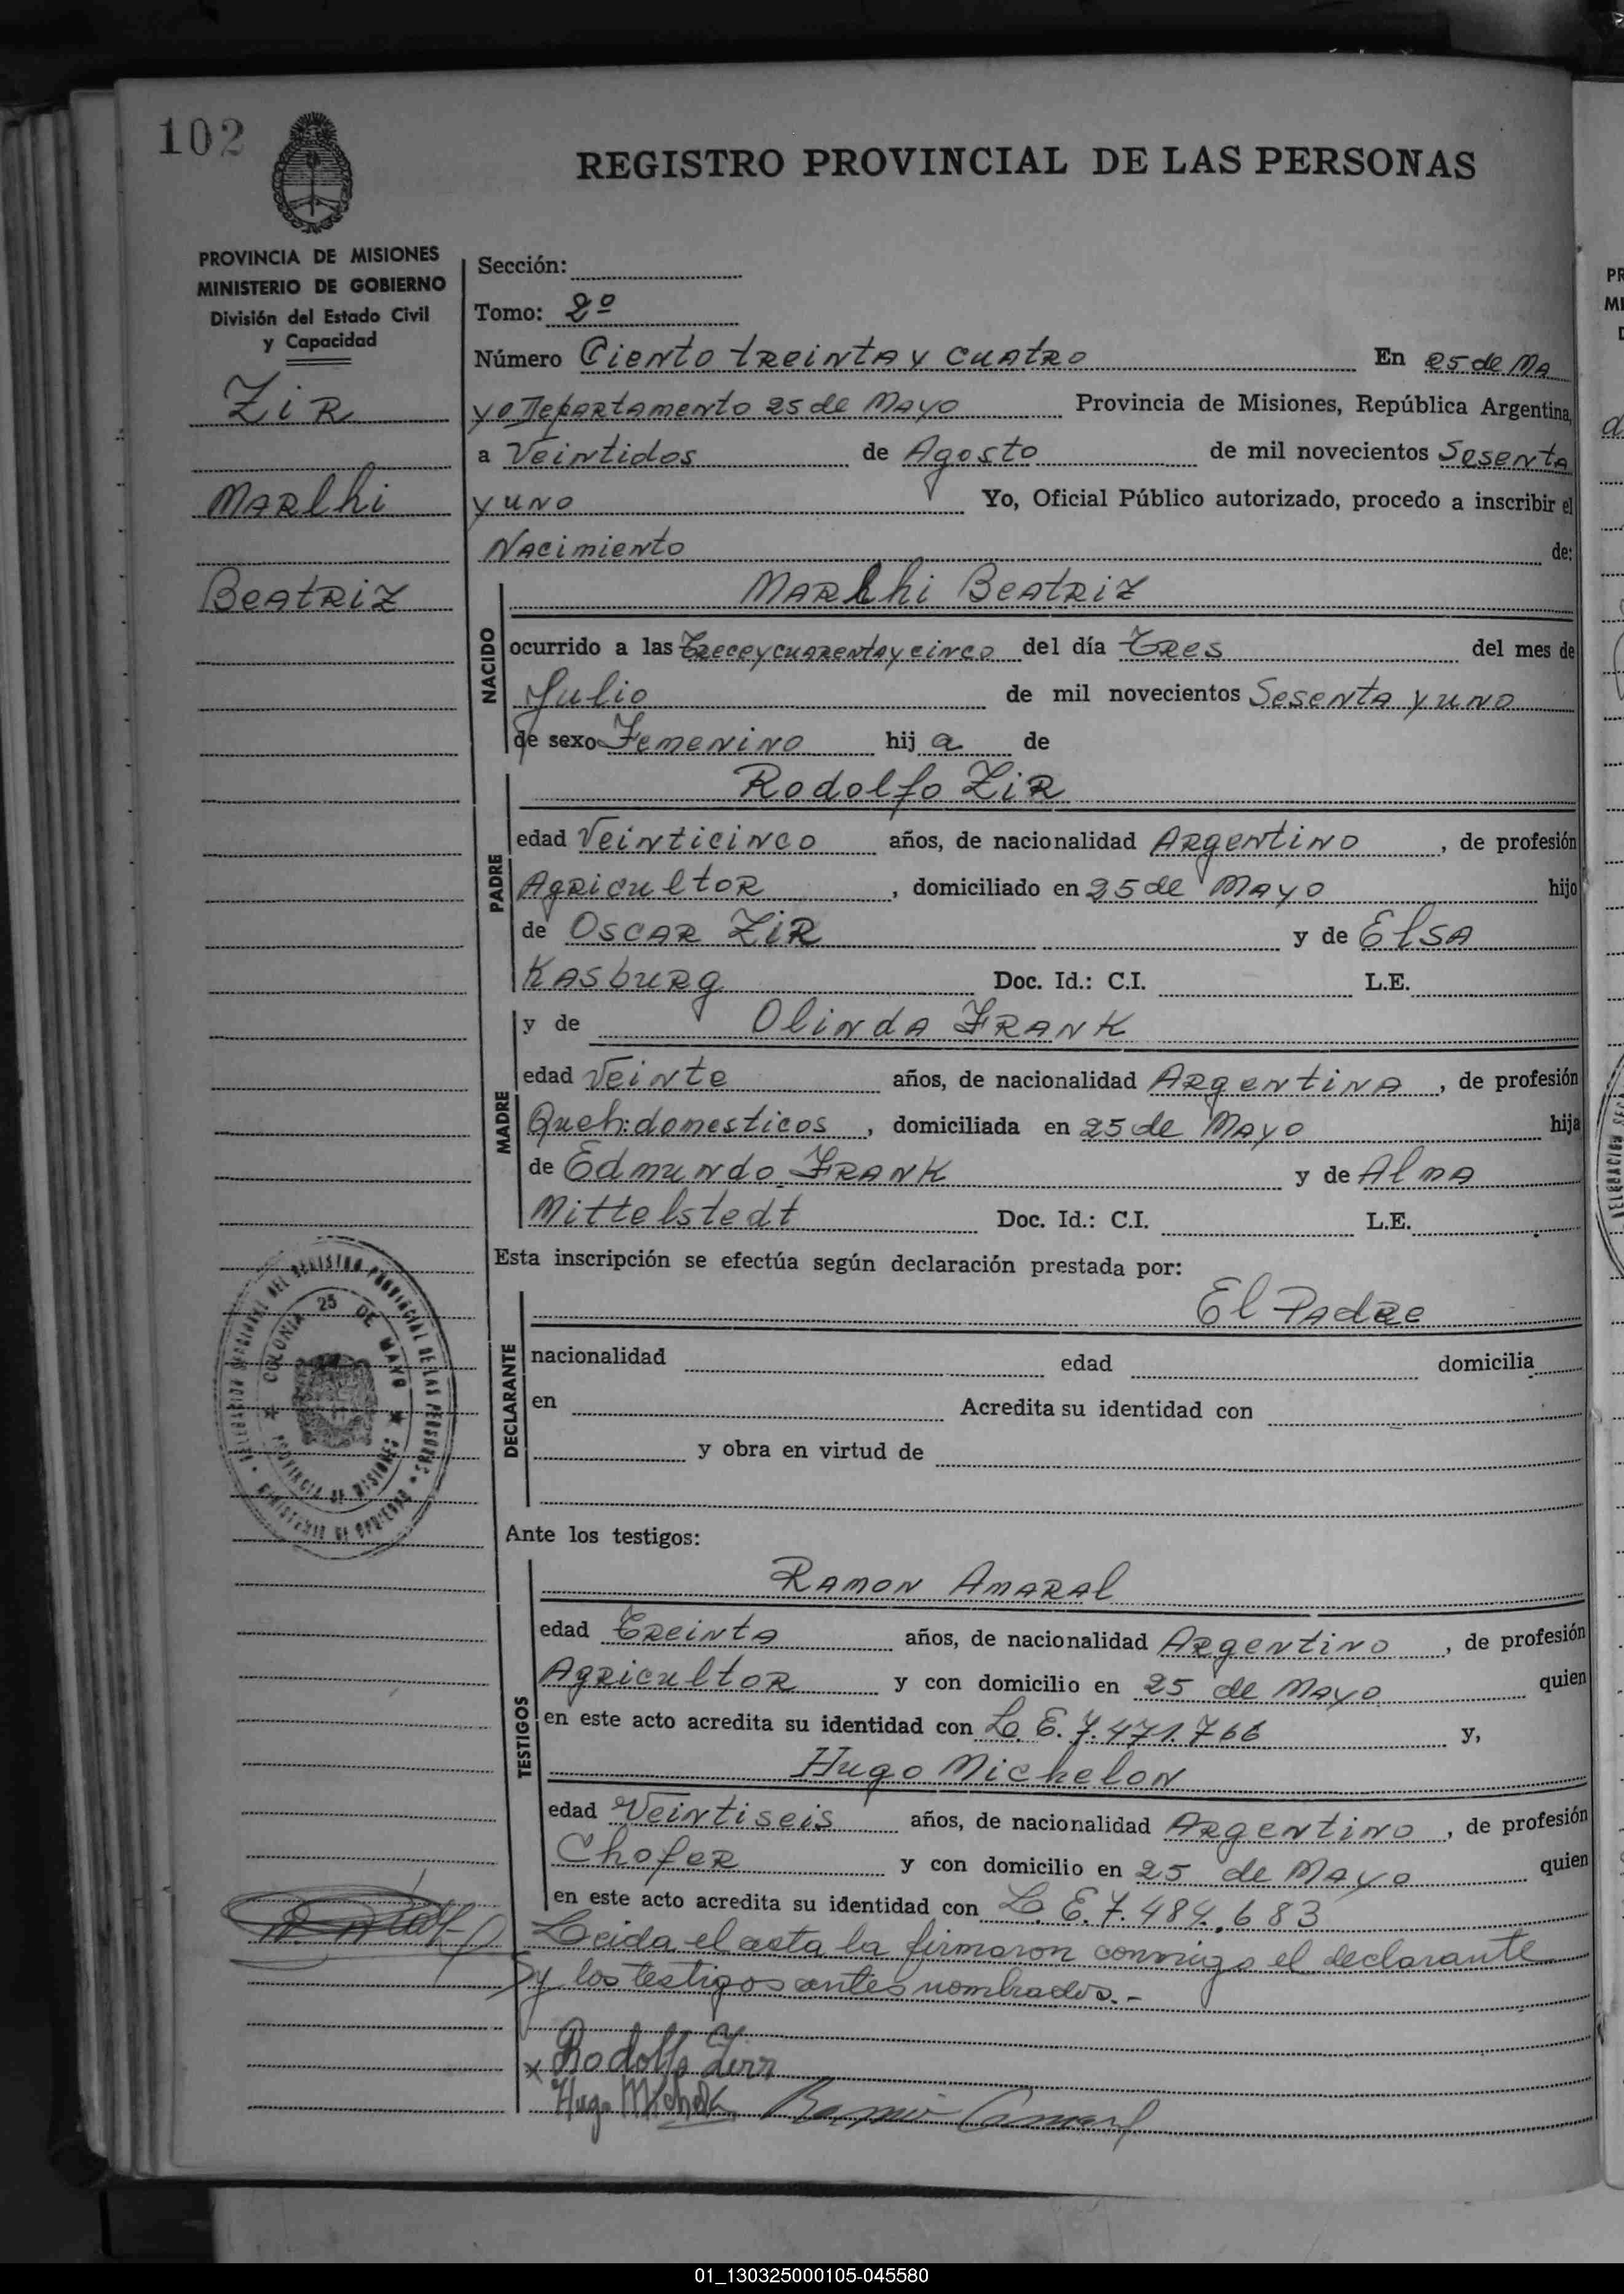 102
REGISTRO PROVINCIAL DE LAS PERSONAS
PROVINCIA DE MISIONES
MINISTERIO DE GOBIERNO
División del Estado Civil
y Capacidad
Zir
Marlhi
Beatriz
Sección:
Tomo: 2º
Número Ciento treinta y cuatro En 25 de Ma
yo Departamento 25 de Mayo Provincia de Misiones, República Argentina,
a Veintidos de Agosto de mil novecientos Sesenta
y uno Yo, Oficial Público autorizado, procedo a inscribir el
Nacimiento de:
NACIDO
Marlhi Beatriz
ocurrido a las Trece y cuarenta y cinco del día Tres del mes de
Julio de mil novecientos Sesenta y uno
de sexo Femenino hij a de
PADRE
Rodolfo Zir
edad Veinticinco años, de nacionalidad Argentino, de profesión
Agricultor, domiciliado en 25 de Mayo hijo
de Oscar Zir y de Elsa
Kasburg Doc. Id.: C.I. L.E.
MADRE
y de Olinda Frank
edad Veinte años, de nacionalidad Argentina, de profesión
Queh: domesticos, domiciliada en 25 de Mayo hija
de Edmundo Frank y de Alma
Mittelstedt Doc. Id.: C.I. L.E.
Esta inscripción se efectúa según declaración prestada por:
DECLARANTE
El Padre
nacionalidad edad domicilia
en Acredita su identidad con
y obra en virtud de
COLONIA 25 DE MAYO
PROVINCIA DE MISIONES
DEL REGISTRO PROVINCIAL DE LAS PERSONAS
MINISTERIO DE GOBIERNO
Ante los testigos:
TESTIGOS
Ramon Amaral
edad Treinta años, de nacionalidad Argentino, de profesión
Agricultor y con domicilio en 25 de Mayo quien
en este acto acredita su identidad con L. E. 7.471.766 y,
Hugo Michelon
edad Veintiseis años, de nacionalidad Argentino, de profesión
Chofer y con domicilio en 25 de Mayo quien
en este acto acredita su identidad con L. E. 7.484.683
Leida el acta la firmaron conmigo el declarante
y los testigos antes nombrados.-
x Rodolfo Zirr
Hugo Michelon Ramon Amaral
01_130325000105-045580